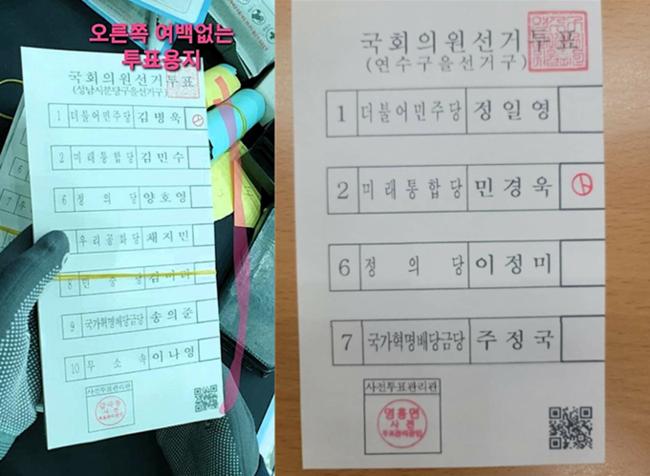 오른쪽 여백없는
투표용지
국회의원선거투표
(성남시분당구을선거구)
1 더불어민주당 김병욱
2 미래통합당 김민수
6 정의당 양호영
우리공화당 채지민
8 민중당 김미라
9 국가혁명배당금당 송의준
10 무소속 이나영
사전투표관리관
사전
국회의원선거투표
(연수구을선거구)
1 더불어민주당 정일영
2 미래통합당 민경욱
6 정의당 이정미
7 국가혁명배당금당 주정국
사전투표관리관
사전
투표관리관인